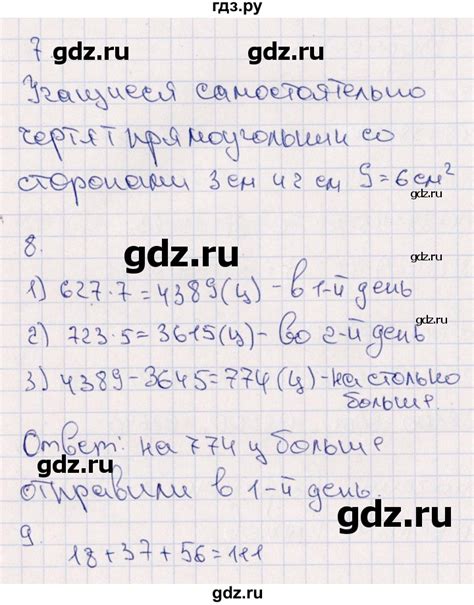 гдз.ру
7
gdz.ru
gdz.ru
Учащиеся самостоятельно
gdz.ru
gdz.ru
чертят прямоугольник со
сторонами 3 см и 2 см S=6 см²
gdz.ru
8.
gdz.ru
1) 627·7=4389(ц) - в 1-й день
gdz.ru
2) 723·5=3615(ц) - во 2-й день
3) 4389-3645=774(ц) - на столько
больше.
gdz.ru
gdz.ru
Ответ: на 774 ц больше
gdz.ru
отправили в 1-й день.
gdz.ru
9.
18+37+56=111
gdz.ru
gdz.ru